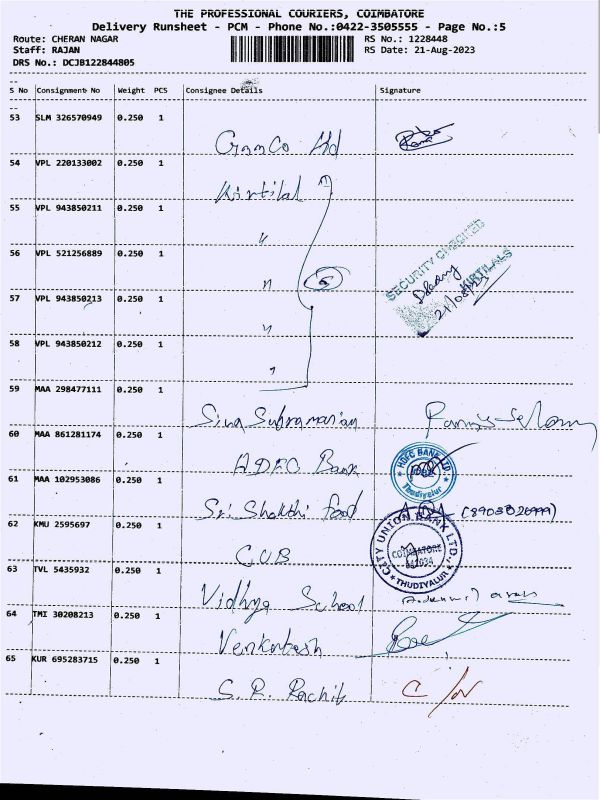 THE PROFESSIONAL COURIERS, COIMBATORE
Delivery Runsheet - PCM - Phone No.:0422-3505555 - Page No.:5
Route: CHERAN NAGAR RS No.: 1228448
Staff: RAJAN RS Date: 21-Aug-2023
DRS No.: DCJB122844805
S No Consignment No Weight PCS Consignee Details Signature
53 SLM 326570949 0.250 1
54 VPL 220133002 0.250 1
Kirtilal
55 VPL 943850211 0.250 1
"
56 VPL 521256889 0.250 1
" 5
SECURITY CHECKED
KIRTILALS
21/08/23
57 VPL 943850213 0.250 1
"
58 VPL 943850212 0.250 1
"
59 MAA 298477111 0.250 1
Siva Subramanian
60 MAA 861281174 0.250 1
HDFC Bank
HDFC BANK LTD
Thudiyalur
61 MAA 102953086 0.250 1
Sri Shakthi food
62 KMU 2595697 0.250 1
CUB
CITY UNION BANK LTD.,
COIMBATORE
641034
THUDIYALUR
63 TVL 5435932 0.250 1
Vidhya School
64 TMI 30208213 0.250 1
Venkatesh
65 KUR 695283715 0.250 1
S. R. C/N